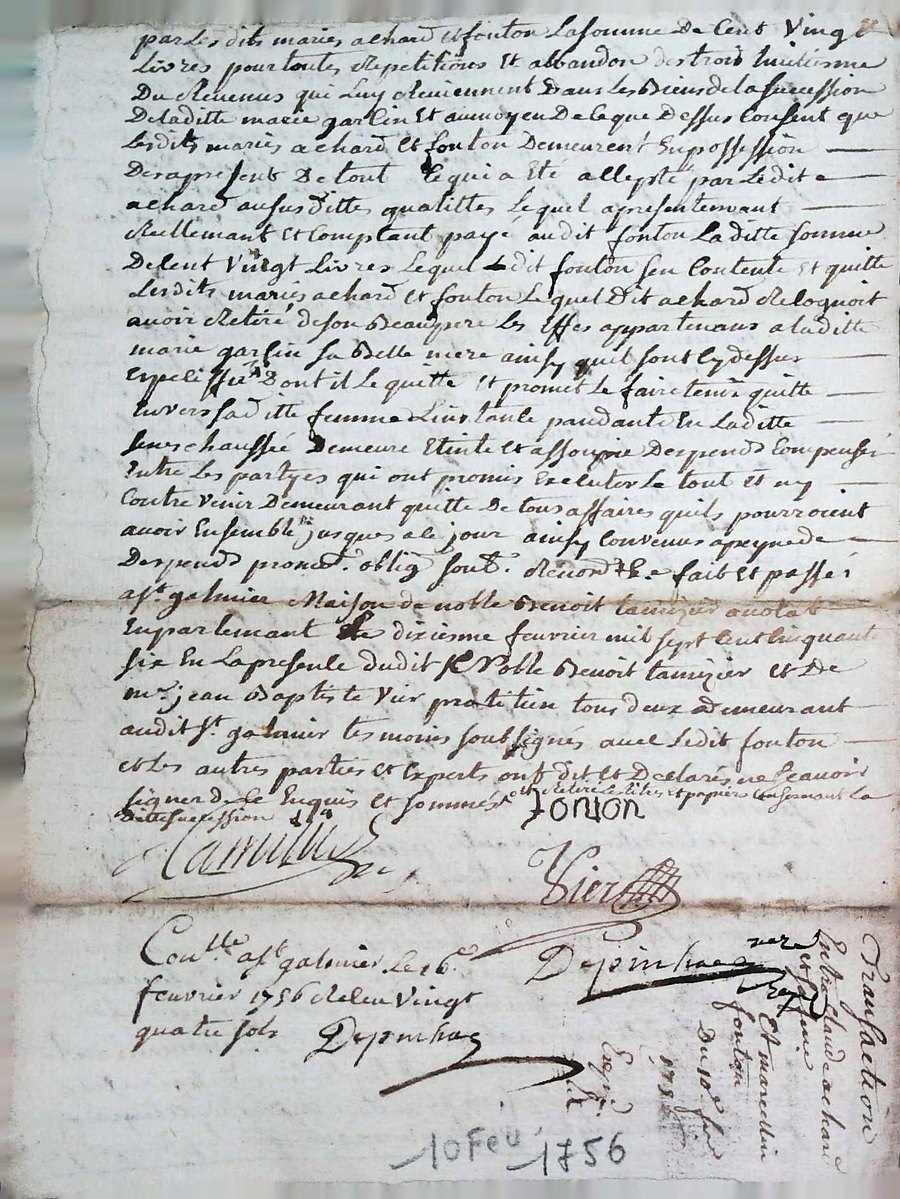 par Les dits mariés achard et fonton La somme De Cent Vingt
Livres pour toutes Repetitions Et abbandon des trois huitiesme
Du Revenus qui Luy Reviennent Dans Les Biens de la succession
De laditte marie garlin Et aumoyen De Ce que Dessus Consent que
Lesdits mariés achard et fonton Demeurent En possession
Des apresent De tout Ce qui a Eté accepté par Ledit
achard ausus dittes qualittes Lequel apresentemant
Reellemant Et Comptant payé audit fonton Laditte somme
De Cent Vingt Livres Lequel dit fonton sen Contente Et quitte
Lesdits mariés achard et fonton Lequel Dit achard Recognoit
avoir Retiré de son Beaupere Les Effes appartenans a laditte
marie garlin sa Belle mere ainsy quil sont Cy dessus
Dont il Le quitte Et promet Le faire tenir quitte
Envers saditte femme Linstance pandante En Laditte
senechaussée Demeure Eteinte Et assoupie Despends Compensés
Entre Les partyes qui ont promis Executer Le tout Et ny
Contrevenir Demeurant quitte De tous affaires quils pourroient
avoir Ensemble jusques a Ce jour ainsy Convenus apeyne de
Despends promet. oblig. soub. Renon. &e. fait Et passé
a st galmier Maison de noble Benoit tamizier avocat
En parlemant Le dixiesme fevrier mil sept Cent Cinquante
six En La presence dudit noble Benoit tamizier Et De
me. jean Baptiste Vier pratitien tous deux Demeurant
audit st. galmier tesmoins soubsignés avec Ledit fonton
Et Les autres parties Et Experts ont dit Et Declarés ne scavoir
signer de Ce Enquis Et sommés et Retiré Les titres et papiers Consernant La
ditte succession
fonton
Vier
Con.lle a st galmier Le 16e.
fevrier 1756 Receu Vingt
quatre sols
Depinhac
Depinhac
Transaction
Entre claude achard
Et marcellin
fonton
Du 10e fer
1756
10 Feu 1756